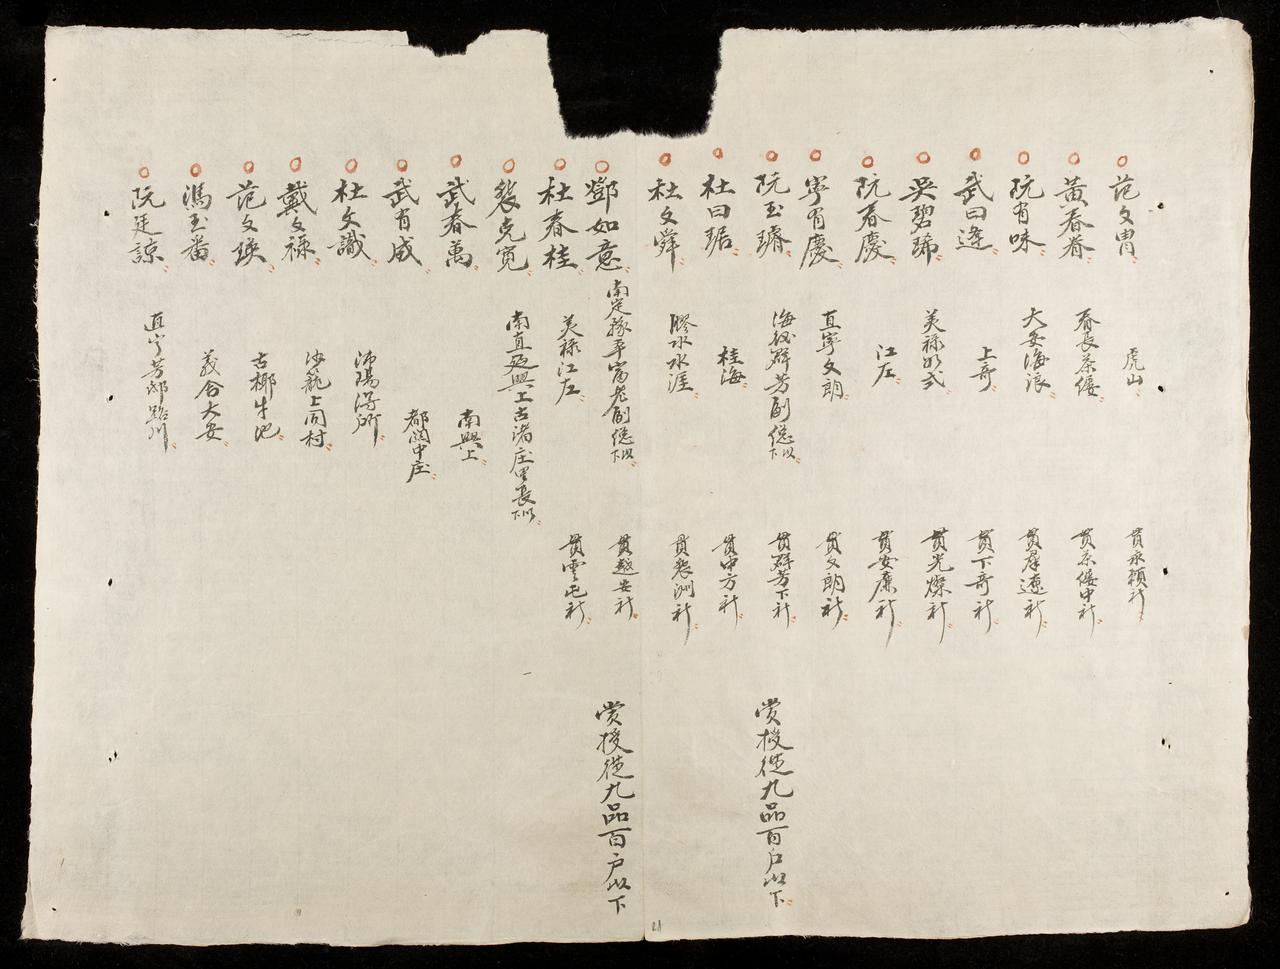 范文胄 虎山 貫永禎社
黃春眷 春長茶縷 貫茶縷中社
阮有味 大安海浪 貫群遼社
武曰逢 上奇 貫下奇社
吳碧 美祿 貫光燦社
阮春慶 江左 貫安廉社
寧有慶 直寧文朗 貫文朗社
阮玉璿 海後群芳副總以下 貫群芳下社 賞授從九品百戶以下
杜曰琚 桂海 貫中方社
杜文舜 膠水水涯 貫裴洲社
鄧如意 南定豫平富老副總以下 貫越安社 賞授從九品百戶以下
杜春桂 美祿江左 貫雲屯社
裴克寬 南直延興上古渚庄里長以下
武春萬 南興上
武有成 都關中庄
杜文識 沛陽得所
戴文祿 沙籠上同村
范文瑛 古椰牛池
馮玉番 義合大安
阮廷諒 直寧芳邸路川